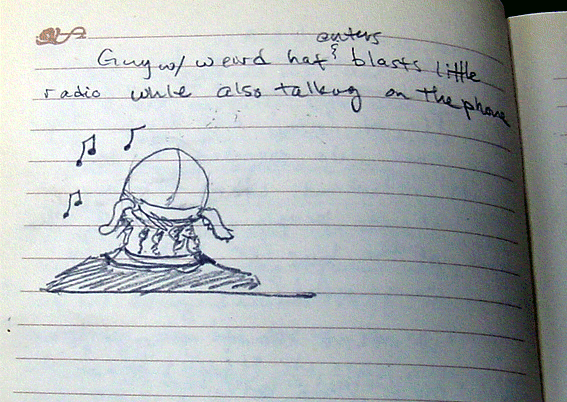 enters
Guy w/ weird hat & blasts little
radio while also talking on the phone